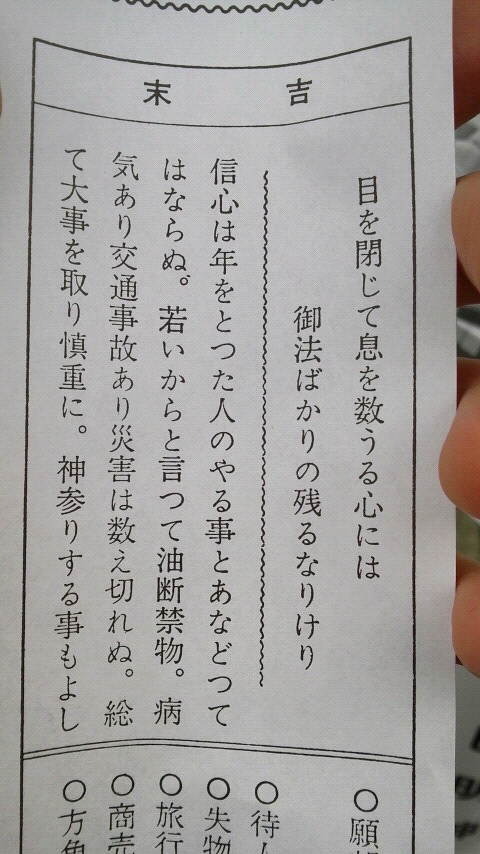 末吉
目を閉じて息を数うる心には
御法ばかりの残るなりけり
信心は年をとつた人のやる事とあなどつて
はならぬ。若いからと言つて油断禁物。病
気あり交通事故あり災害は数え切れぬ。総
て大事を取り慎重に。神参りする事もよし
○願
○待
○失物
○旅行
○商売
○方角